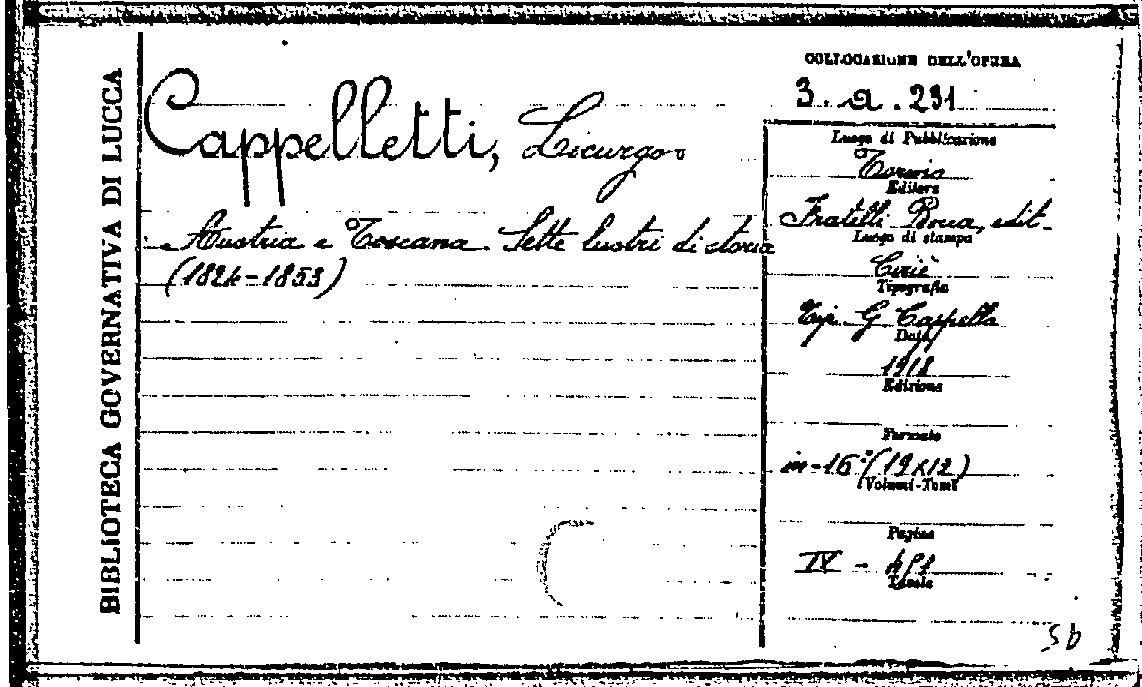 BIBLIOTECA GOVERNATIVA DI LUCCA
Cappelletti, Licurgo.
Austria e Toscana. Sette lustri di storia
(1824-1853)
COLLOCAZIONE DELL'OPERA
3. a. 231
Luogo di Pubblicazione
Torino
Editore
Fratelli Bocca, edit.
Luogo di stampa
Ciriè
Tipografia
Tip. G Cappella
Data
1918
Edizione
Formato
in-16° (19x12)
Volumi-Tomi
Pagine
IV - 451
Tavole